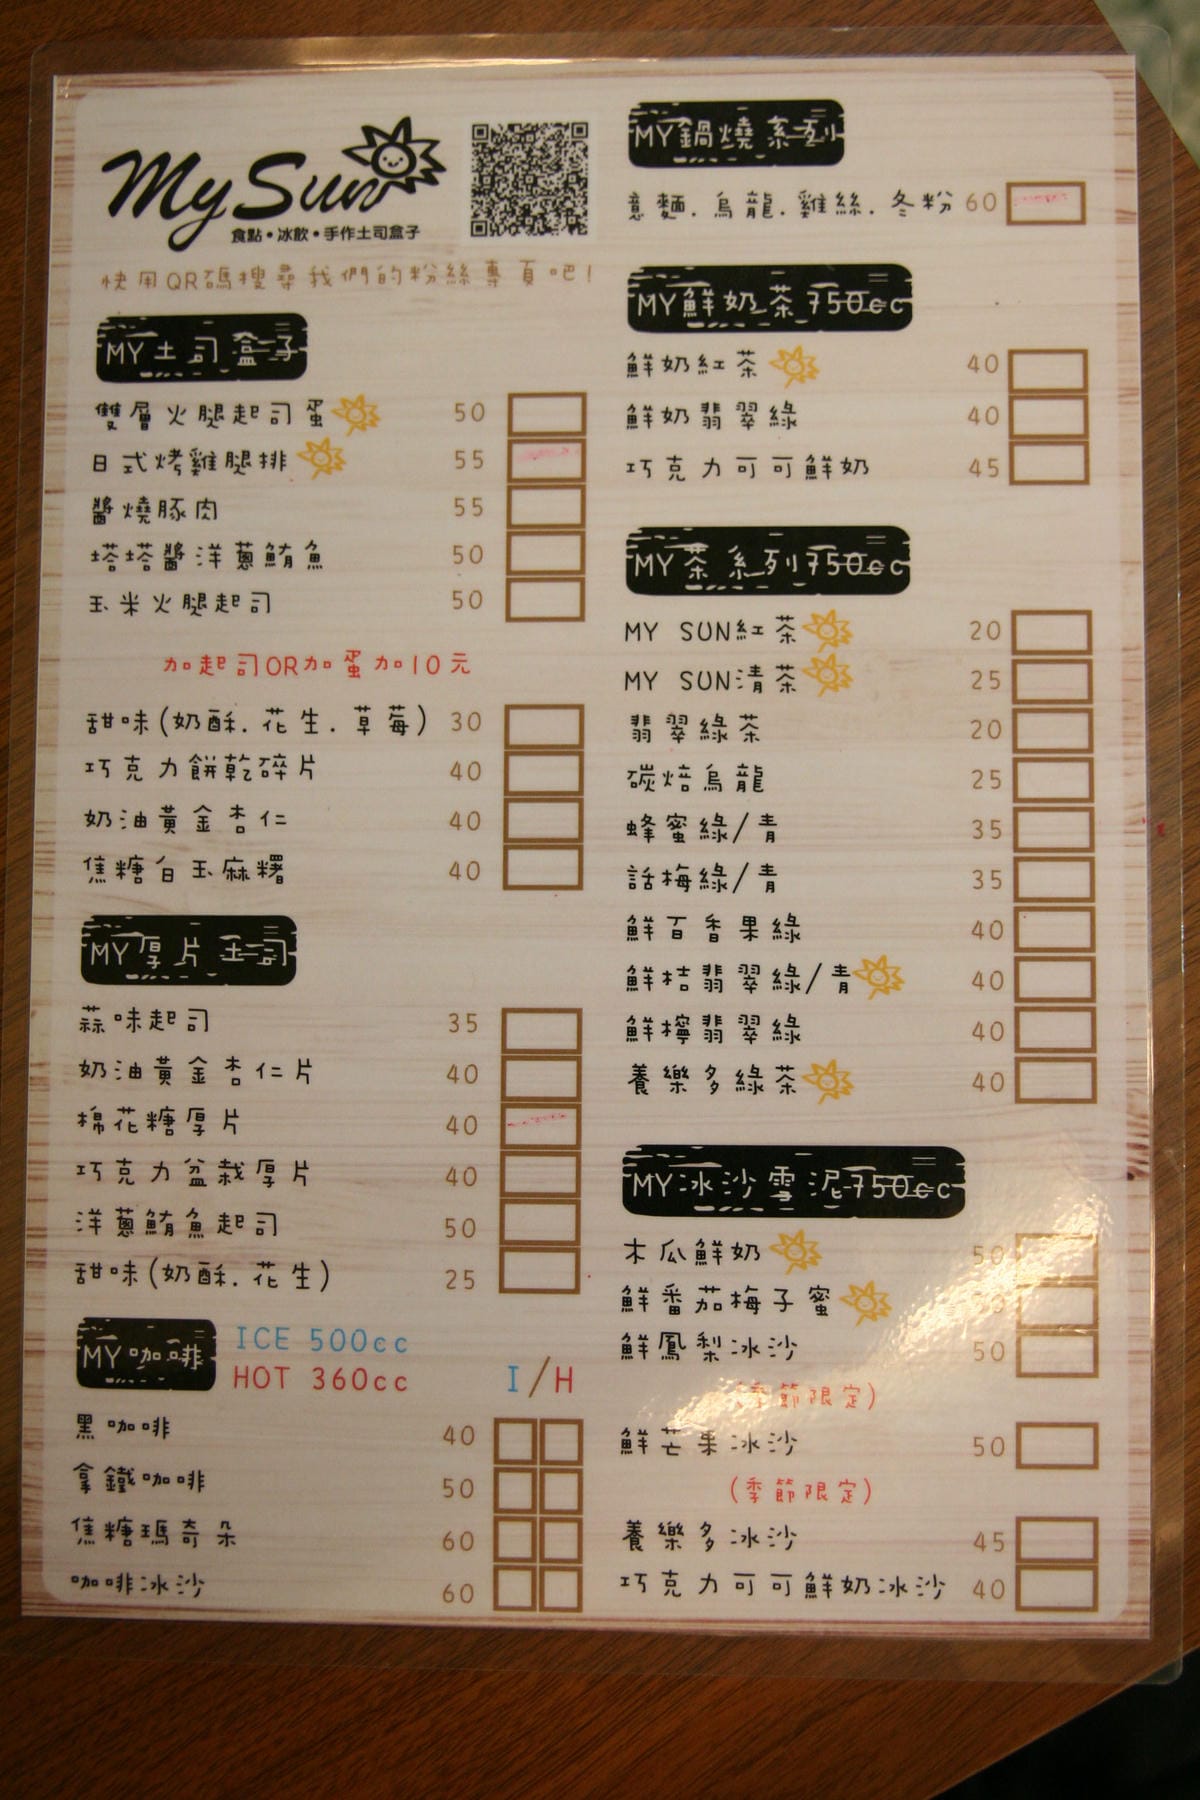 My Sun
食點•冰飲•手作土司盒子
快用QR碼搜尋我們的粉絲專頁吧!
MY土司盒子
雙層火腿起司蛋 50
日式烤雞腿排 55
醬燒豚肉 55
塔塔醬洋蔥鮪魚 50
玉米火腿起司 50
加起司OR加蛋加10元
甜味(奶酥.花生.草莓) 30
巧克力餅乾碎片 40
奶油黃金杏仁 40
焦糖白玉麻糬 40
MY厚片土司
蒜味起司 35
奶油黃金杏仁片 40
棉花糖厚片 40
巧克力盆栽厚片 40
洋蔥鮪魚起司 50
甜味(奶酥.花生) 25
MY咖啡
ICE 500cc
HOT 360cc
I/H
黑咖啡 40
拿鐵咖啡 50
焦糖瑪奇朵 60
咖啡冰沙 60
MY鍋燒系列
意麵.烏龍.雞絲.冬粉 60
MY鮮奶茶750cc
鮮奶紅茶 40
鮮奶翡翠綠 40
巧克力可可鮮奶 45
MY茶系列750cc
MY SUN紅茶 20
MY SUN清茶 25
翡翠綠茶 20
碳焙烏龍 25
蜂蜜綠/青 35
話梅綠/青 35
鮮百香果綠 40
鮮桔翡翠綠/青 40
鮮檸翡翠綠 40
養樂多綠茶 40
MY冰沙雪泥750cc
木瓜鮮奶 50
鮮番茄梅子蜜
鮮鳳梨冰沙 50
(季節限定)
鮮芒果冰沙 50
(季節限定)
養樂多冰沙 45
巧克力可可鮮奶冰沙 40